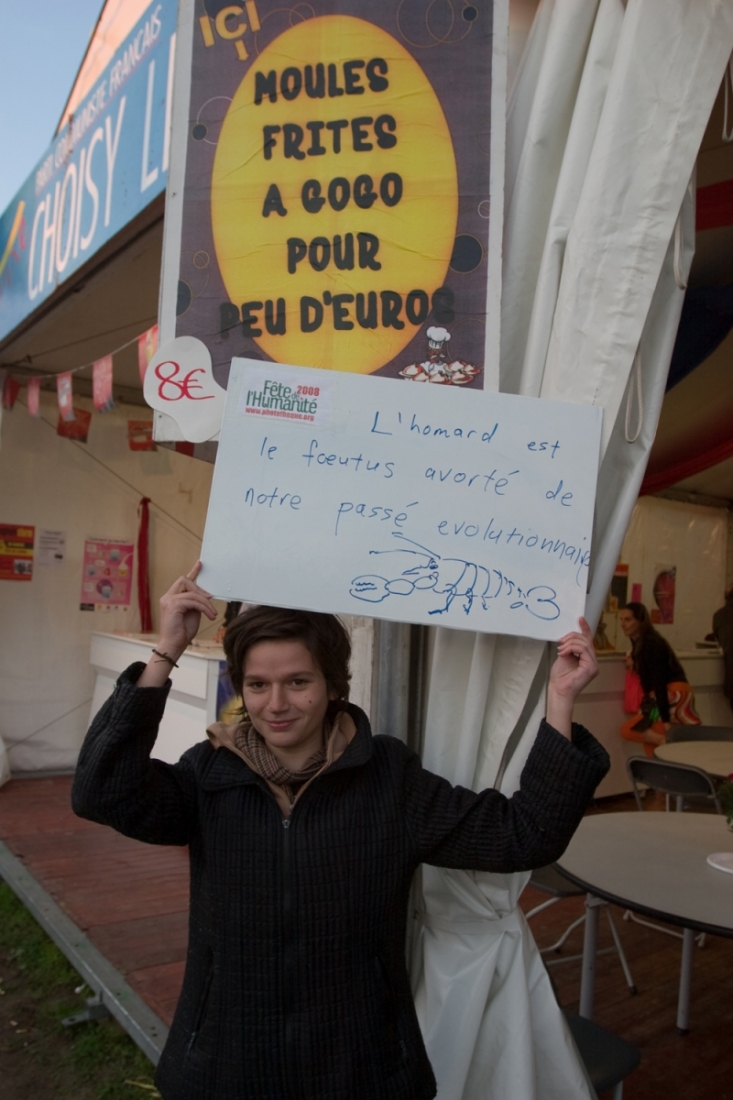 PARTI COMMUNISTE FRANÇAIS
CHOISY L
ICI
MOULES
FRITES
A GOGO
POUR
PEU D'EUROS
8€
Fête de 2008
l'Humanité
www.phototheque.org
L'homard est
le fœutus avorté de
notre passé evolutionnaire